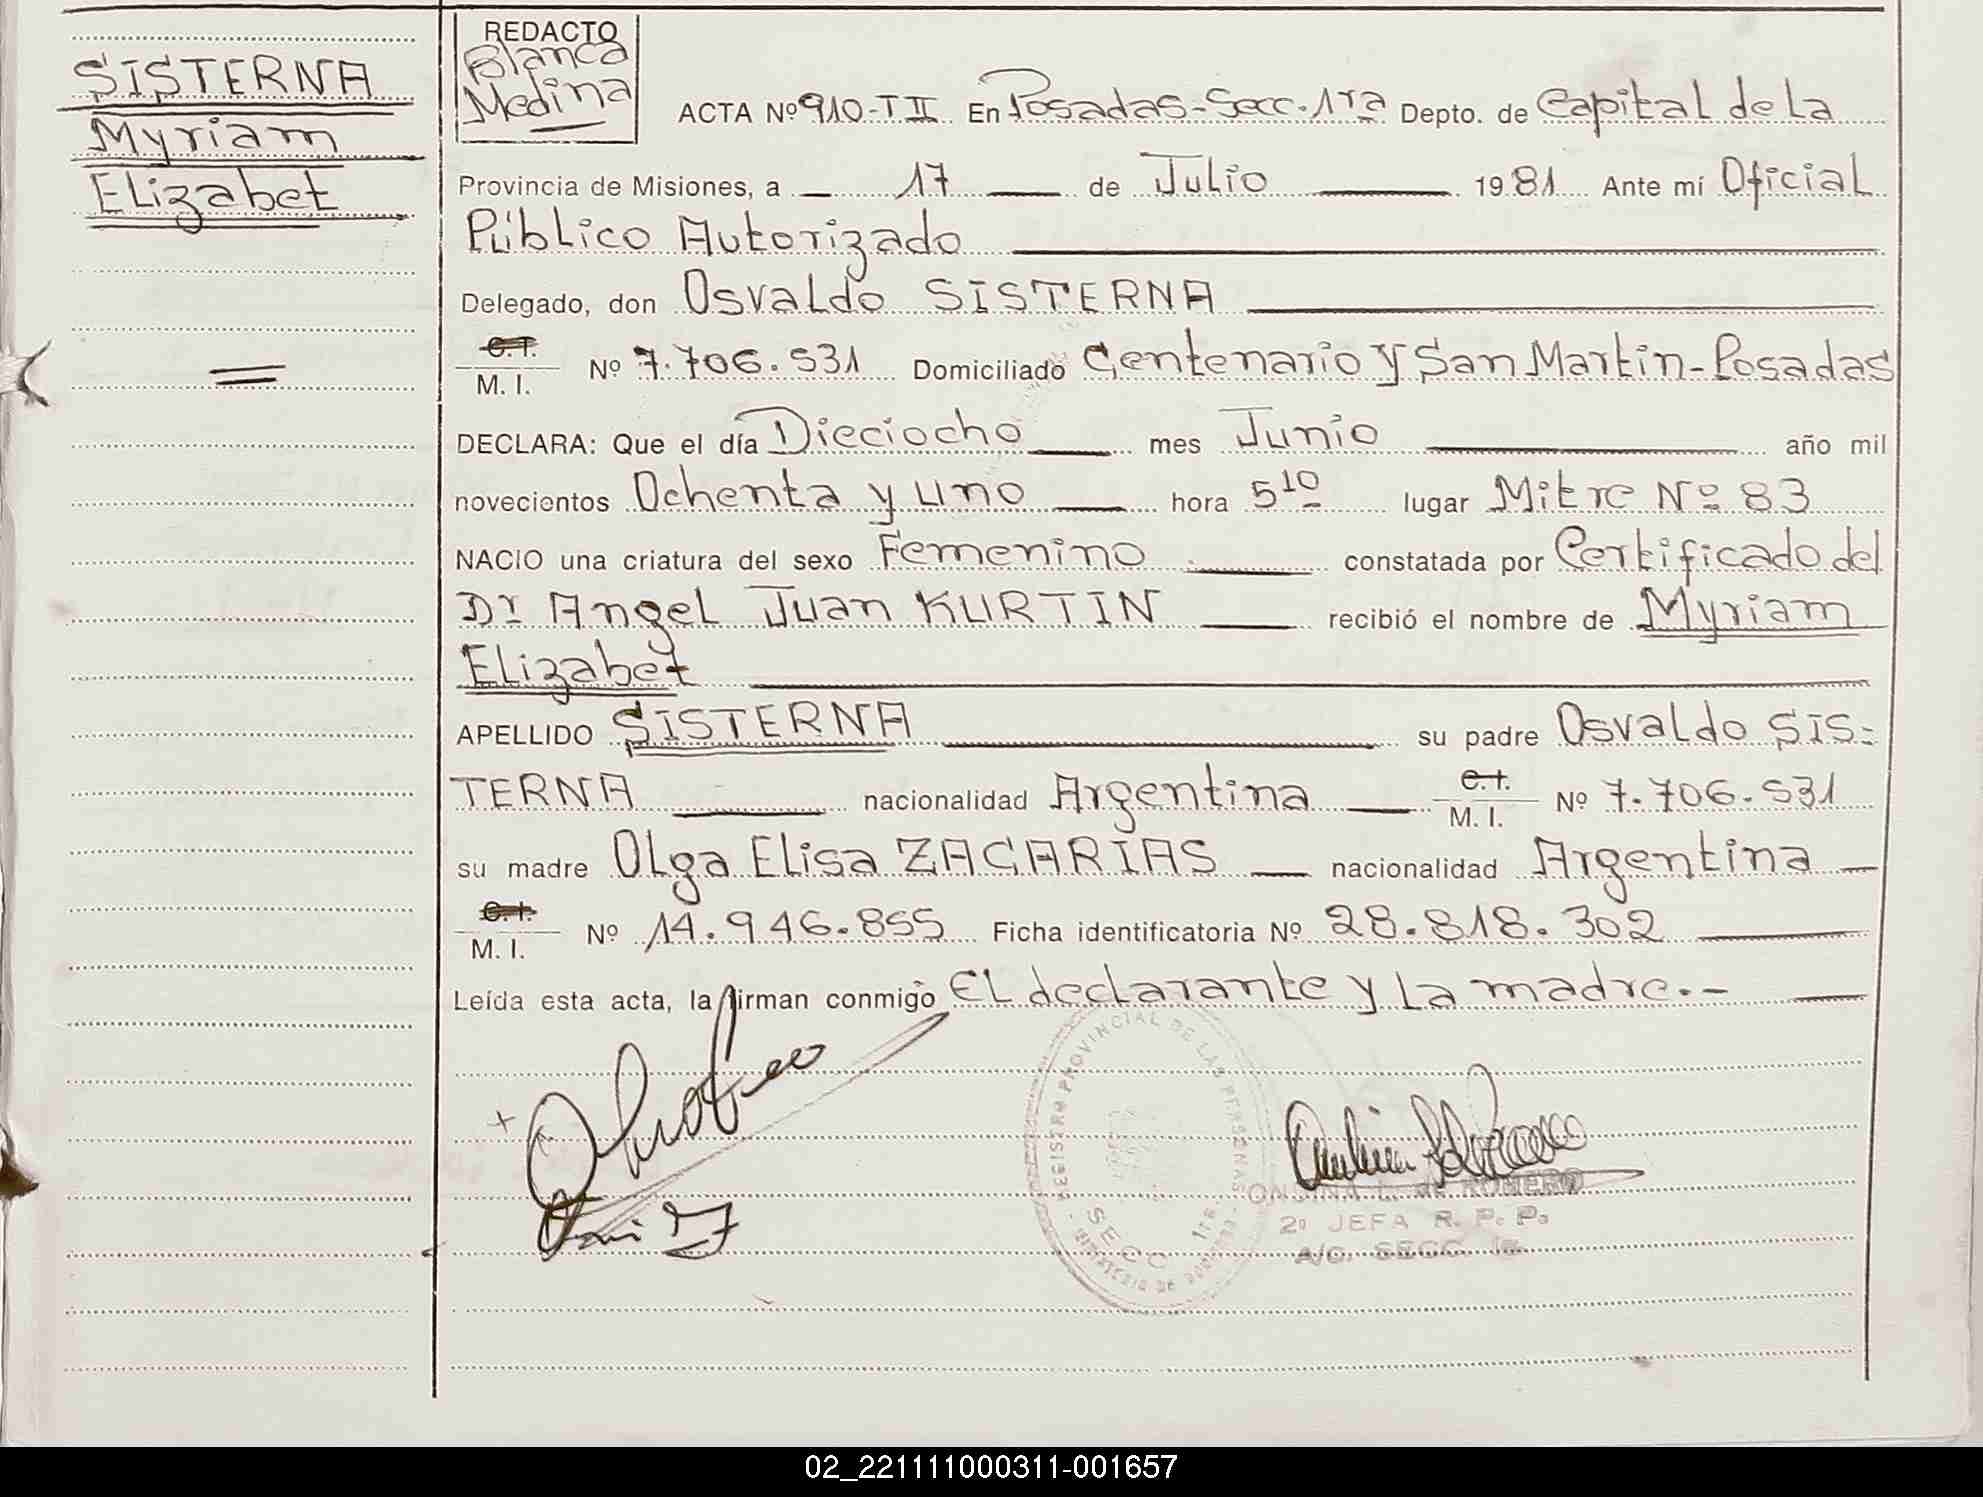 SISTERNA
Myriam
Elizabet
=
REDACTO
Blanca
Medina
ACTA Nº 910-TII En Posadas-Secc.1ra Depto. de Capital de La
Provincia de Misiones, a 17 de Julio 1981 Ante mí Oficial
Público Autorizado
Delegado, don Osvaldo SISTERNA
C.I.
M. I. Nº 7.706.531 Domiciliado Centenario y San Martín-Posadas
DECLARA: Que el día Dieciocho mes Junio año mil
novecientos Ochenta y uno hora 5 10 lugar Mitre Nº 83
NACIO una criatura del sexo Femenino constatada por Certificado del
Dr Angel Juan KURTIN recibió el nombre de Myriam
Elizabet
APELLIDO SISTERNA su padre Osvaldo SIS=
TERNA nacionalidad Argentina C.I. M. I. Nº 7.706.531
su madre Olga Elisa ZACARIAS nacionalidad Argentina
C.I.
M. I. Nº 14.946.855 Ficha identificatoria Nº 28.818.302
Leída esta acta, la firman conmigo EL declarante y La madre.-
REGISTRO PROVINCIAL DE LAS PERSONAS
SECC 1ra.
MINISTERIO DE GOBIERNO
ONDINA L. de ROMERO
2º JEFA R. P. P.
A/C. SECC. 1a.
02_221111000311-001657